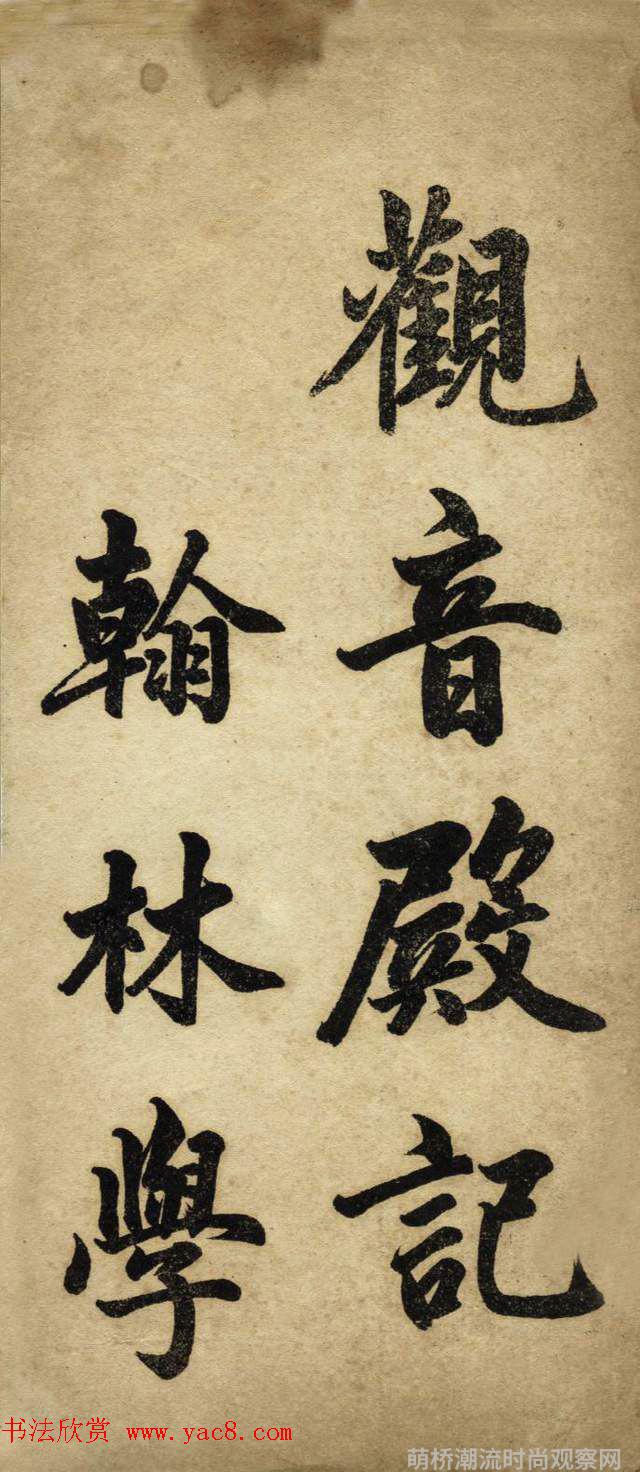 觀音殿記
翰林學
书法欣赏 www.yac8.com
萌桥潮流时尚观察网